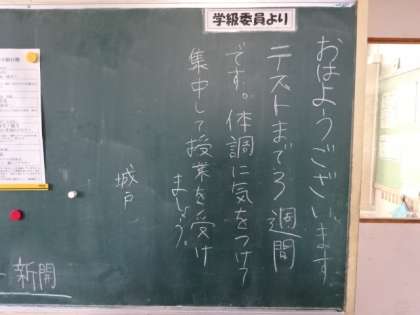 学級委員より
おはようございます
テストまで3週間
です。体調に気をつけて
集中して授業を受け
ましょう。
城戸
新開